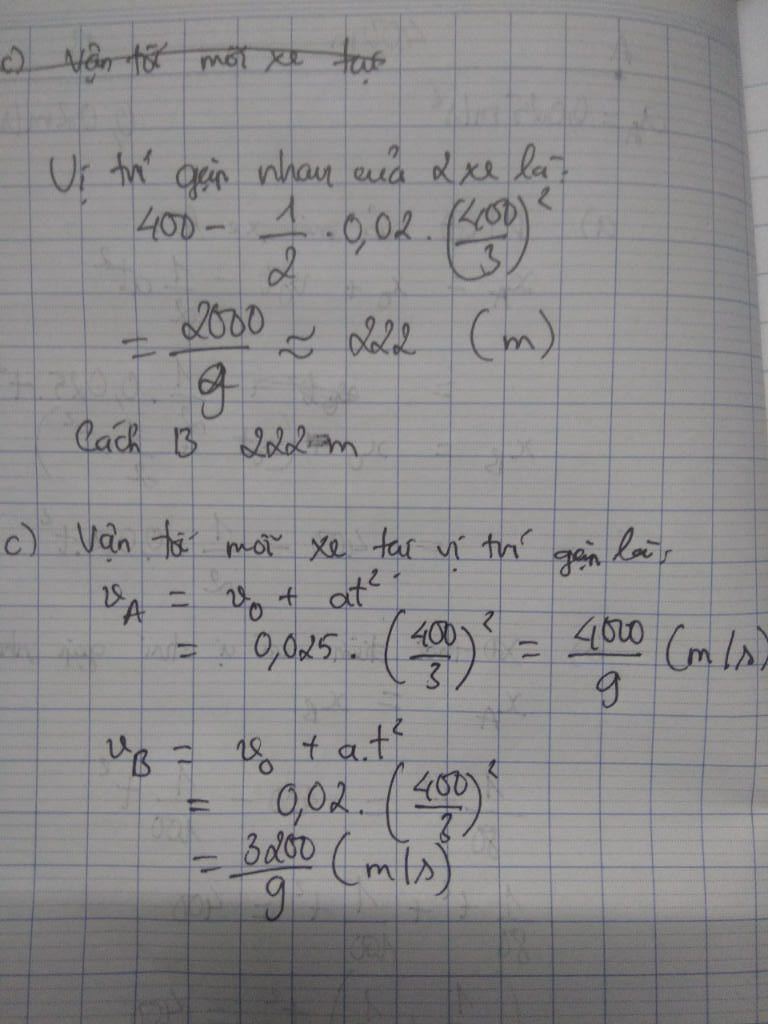 c) Vận tố mỗi xe tại
Vị trí gặp nhau của 2 xe là:
400 - 1/2 . 0,02 . (400/3)²
= 2000/9 ≈ 222 (m)
Cách B 222 m
c) Vận tố mỗi xe tại vị trí gặp là:
v_A = v_0 + at²
= 0,025 . (400/3)² = 4000/9 (m/s)
v_B = v_0 + a.t²
= 0,02 . (400/3)²
= 3200/9 (m/s)